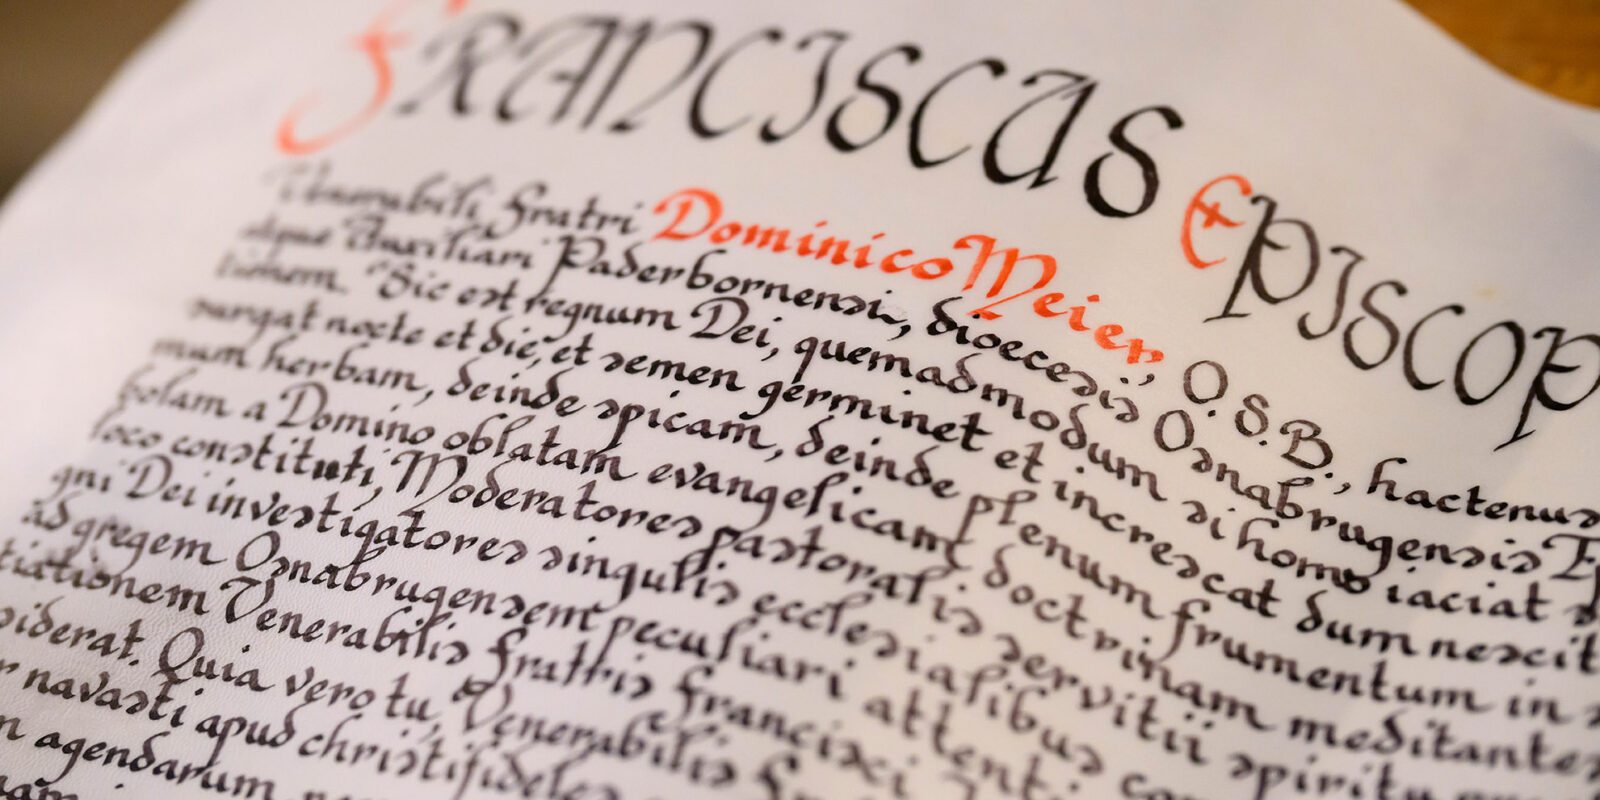 FRANCISCUS EPISCOP
Venerabili Fratri Dominico Meier, O.S.B., hactenus
Auxiliari Paderbornensi, dioecesis Osnabrugensis
tionem. Sic est regnum Dei, quemadmodum si homo iaciat
surgat nocte et die, et semen germinet et increscat dum nescit
mum herbam, deinde spicam, deinde plenum frumentum in
bolam a Domino oblatam evangelicam doctrinam meditantes
loco constituti, Moderatores pastoralis servitii spiritu
gni Dei investigatores singulis ecclesialibus
ad gregem Osnabrugensem peculiari attenti
tiationem Venerabilis Fratris Francisci
siderat. Quia vero tu, Venerabilis
navasti apud christifideles
agendarum